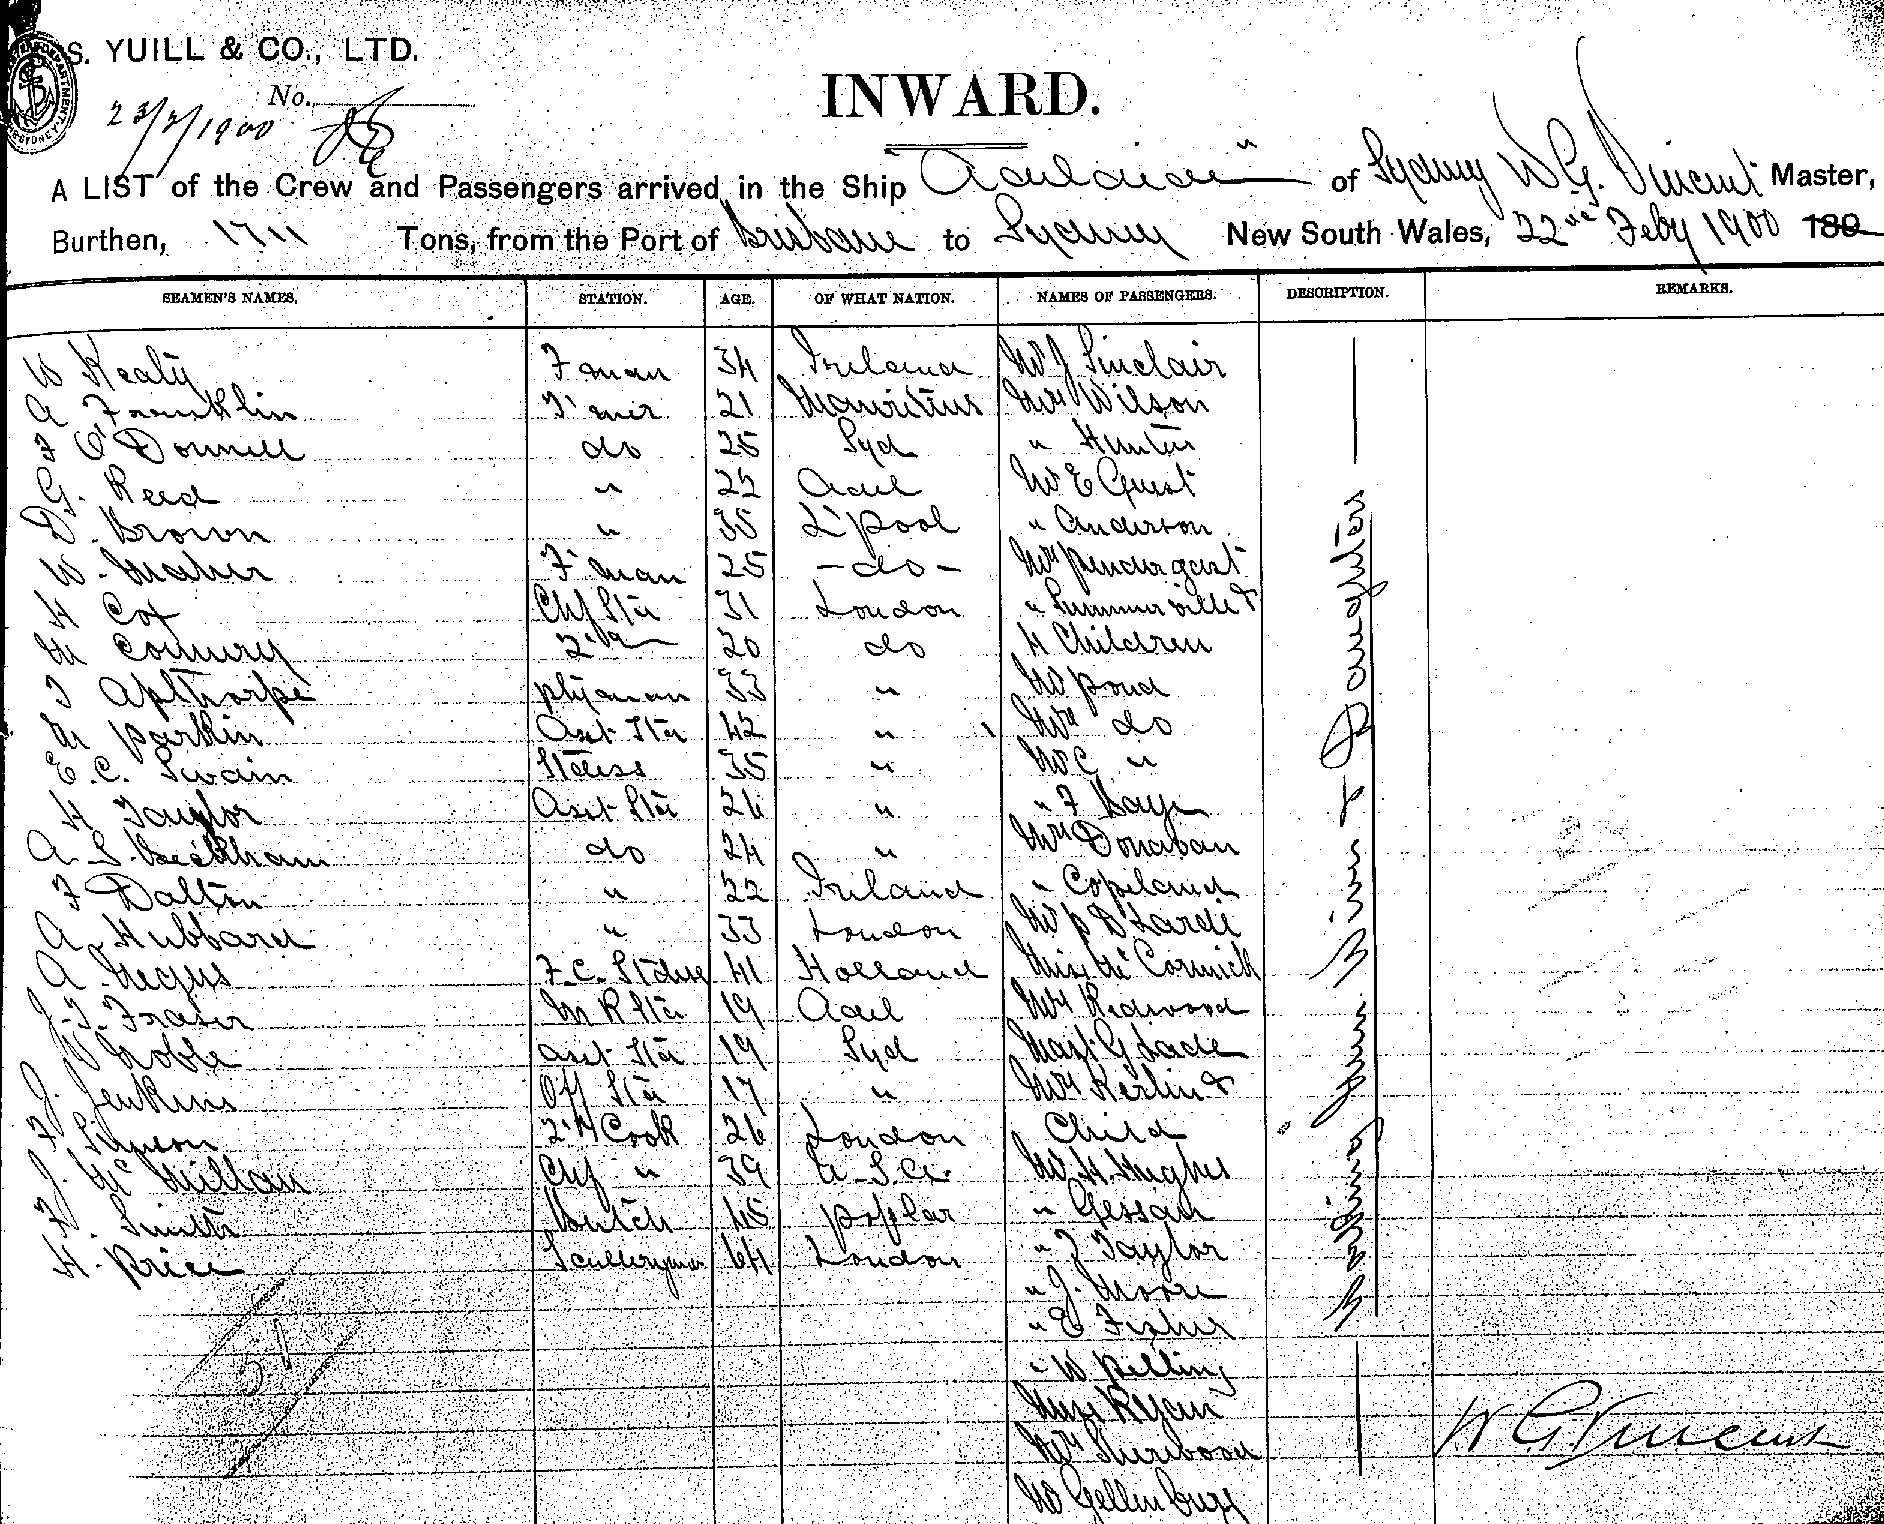 S. YUILL & CO., LTD.
No.
23/2/1900
INWARD.
A LIST of the Crew and Passengers arrived in the Ship of Sydney W G. Vincent Master,
Burthen, 1711 Tons, from the Port of Brisbane to Sydney New South Wales, 22nd Feby 1900 189
SEAMEN'S NAMES. STATION. AGE. OF WHAT NATION. NAMES OF PASSENGERS. DESCRIPTION. REMARKS.
W Healy F'man 34 Ireland Mr J Sinclair
A Franklin T'mer 21 Mauritius Mrs Wilson
F O'Donnell do 25 Syd " Hunter
G. Reed " 22 Adel Mr E Guest
D. Brown " 35 L'pool " Anderson
W. Maher F'man 25 - do - Mrs Pendergast
H Cox Chf Std 31 London " Summerville &
M Conury 2nd " 20 do 4 Children
T Apthorpe P'tyman 33 " Mr Pond
M Parkin Asst Std 42 " Mrs do
E. C. Swain Stdess 35 " Mr C "
H Taylor Asst Std 26 " " F Kaye
A. S. Beckham do 24 " Mrs Donaban
F Dalton " 22 Ireland " Copeland
A. Hubbard " 33 London Mr P D Larde
A. Negus F.C. Stdess 41 Holland Miss McCormick
J. T. Fraser M R Std 19 Adel Mrs Redwood
W Noble Asst Std 19 Syd Mast G Lade
J. Jenkins Off Std 17 " Mrs Kerlin &
F Simeon 2nd Cook 26 London Child
J. McMillan Chf " 39 U.S.A. Mr H. Hughes
F. Smith Butch 45 Poplar " Gessan
H. Price Sculleryman 64 London " F Taylor
" J. Moore
" E Fisher
" W Pelling
Miss Ryan
Mrs Sherwood
Mr Gellenburg
Daughters
&
W G Vincent
51